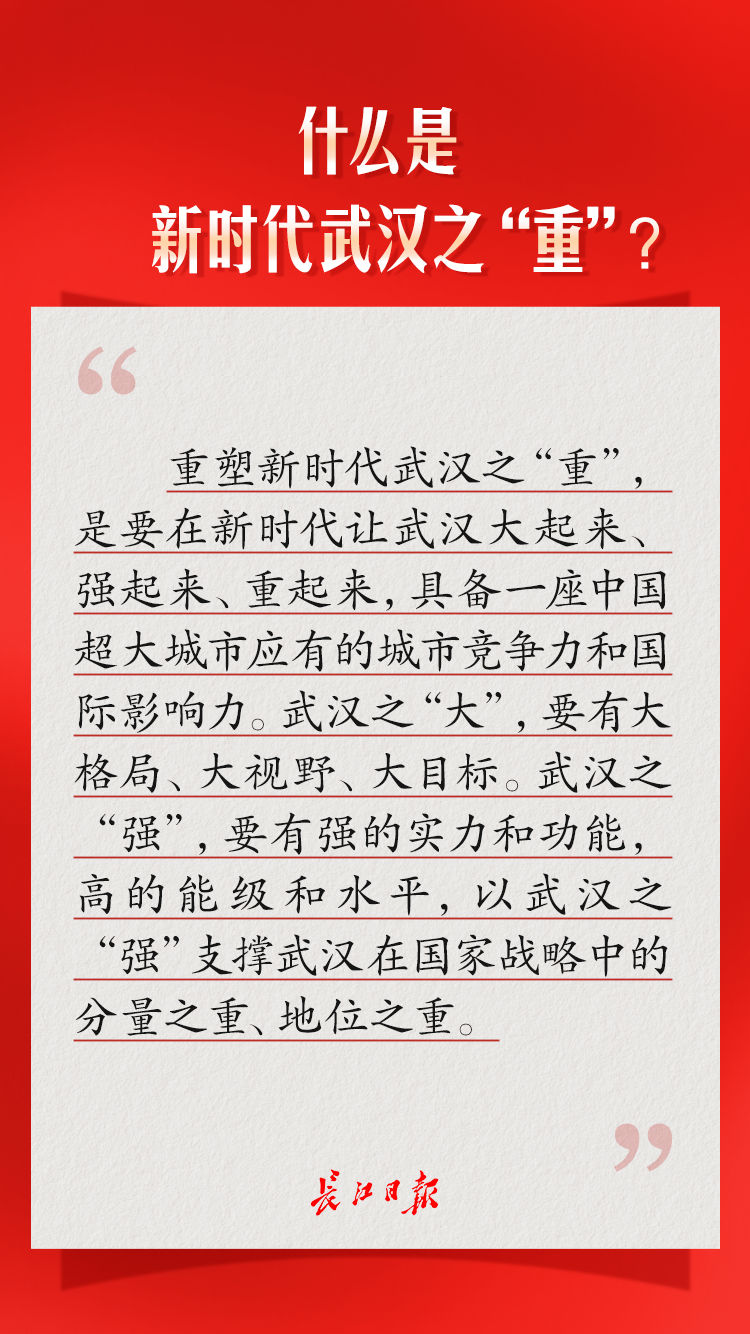 什么是
新时代武汉之“重”?
重塑新时代武汉之“重”,
是要在新时代让武汉大起来、
强起来、重起来,具备一座中国
超大城市应有的城市竞争力和国
际影响力。武汉之“大”,要有大
格局、大视野、大目标。武汉之
“强”,要有强的实力和功能,
高的能级和水平,以武汉之
“强”支撑武汉在国家战略中的
分量之重、地位之重。
长江日报